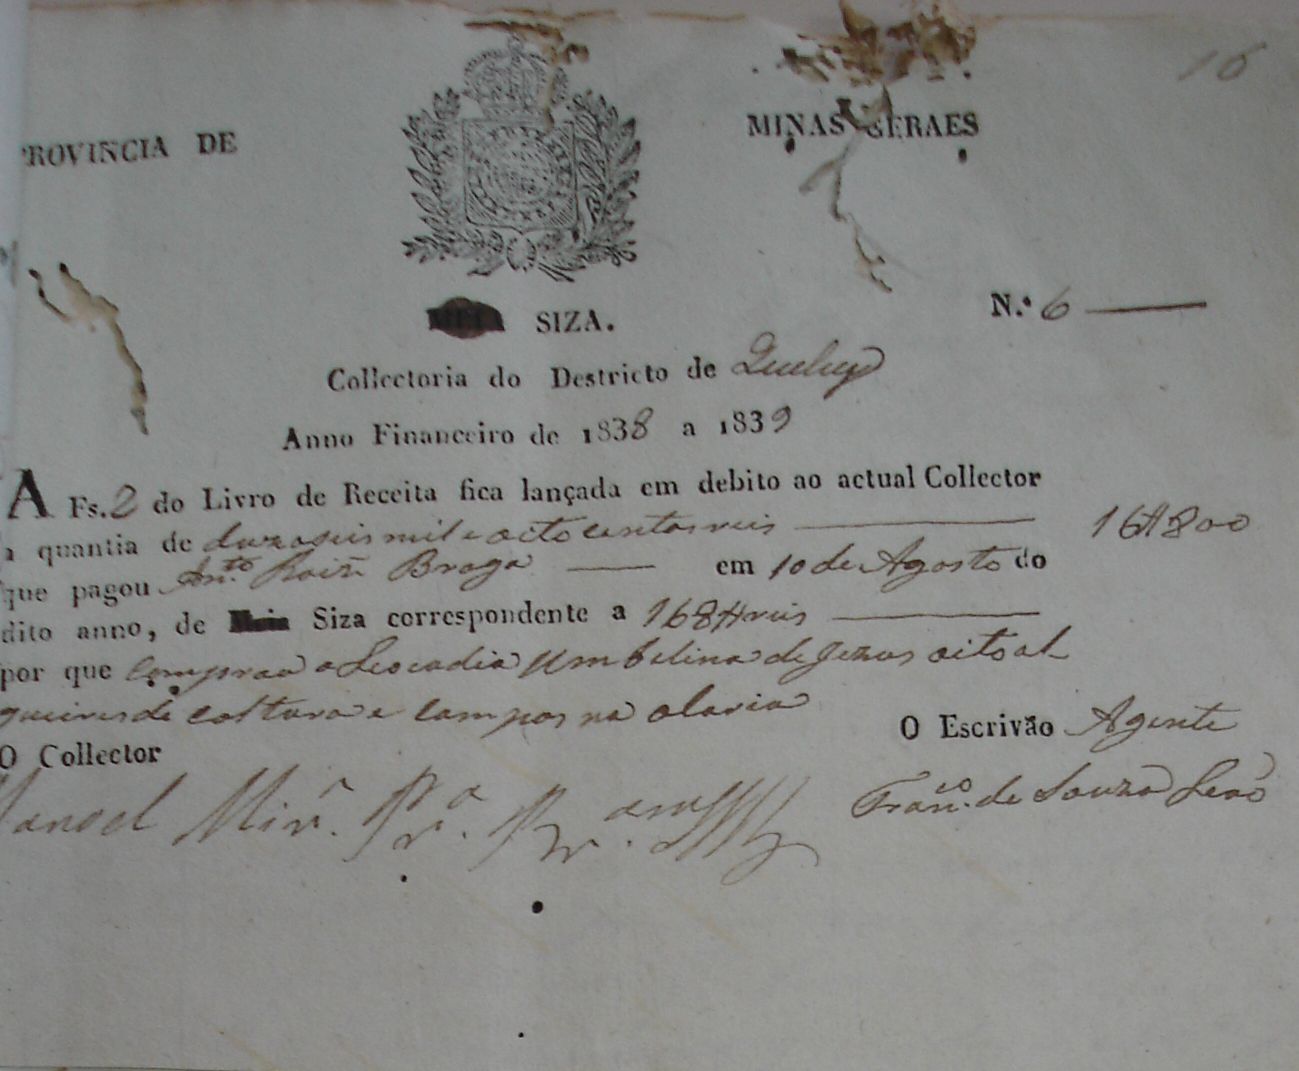 16
PROVINCIA DE MINAS GERAES
SIZA.
N.º 6
Collectoria do Destricto de Queluz
Anno Financeiro de 1838 a 1839
A Fs. 2 do Livro de Receita fica lançada em debito ao actual Collector
a quantia de dezaseis mil e oito centos reis 16$800
que pagou Ant.º Roiz Braga em 10 de Agosto do
dito anno, de Meia Siza correspondente a 168$reis
por que comprou a Leocadia Umbelina de Jezus oito al
queires de coltura e campos na olaria
O Collector
O Escrivão Agente
Manoel
Fran.co de Souza Leão